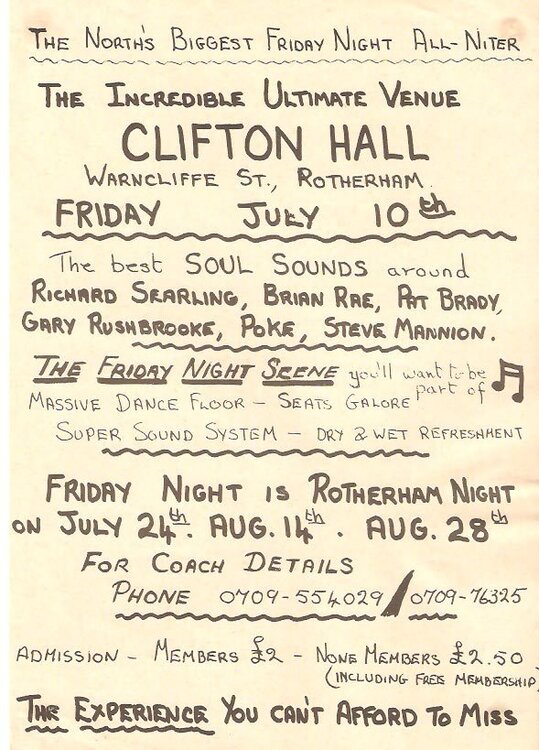 THE NORTH'S BIGGEST FRIDAY NIGHT ALL-NITER
THE INCREDIBLE ULTIMATE VENUE
CLIFTON HALL
WARNCLIFFE ST., ROTHERHAM.
FRIDAY JULY 10th
The best SOUL SOUNDS around
RICHARD SEARLING, BRIAN RAE, PAT BRADY,
GARY RUSHBROOKE, POKE, STEVE MANNION.
THE FRIDAY NIGHT SCENE you'll want to be
part of
MASSIVE DANCE FLOOR - SEATS GALORE
SUPER SOUND SYSTEM - DRY & WET REFRESHMENT
FRIDAY NIGHT IS ROTHERHAM NIGHT
ON JULY 24th. AUG. 14th. AUG. 28th
FOR COACH DETAILS
PHONE 0709-554029 / 0709-76325
ADMISSION - MEMBERS £2 - NONE MEMBERS £2.50
(INCLUDING FREE MEMBERSHIP)
THE EXPERIENCE YOU CAN'T AFFORD TO MISS